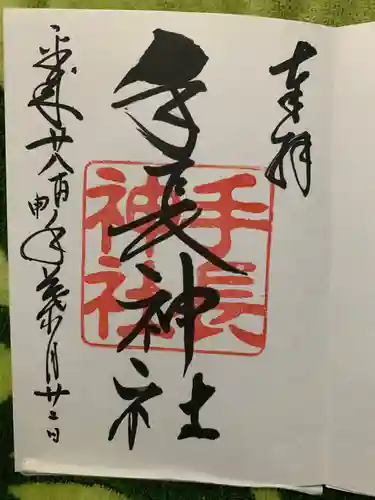 奉拝
手長神社
手長
神社
平成廿八丙
申年葉月廿二日